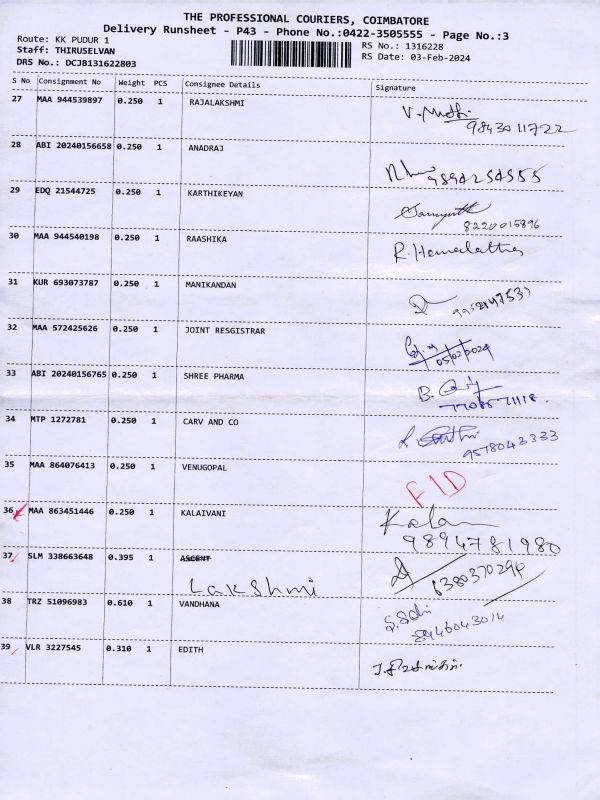 THE PROFESSIONAL COURIERS, COIMBATORE
Delivery Runsheet - P43 - Phone No.:0422-3505555 - Page No.:3
Route: KK PUDUR 1
RS No.: 1316228
Staff: THIRUSELVAN
RS Date: 03-Feb-2024
DRS No.: DCJB131622803
S No Consignment No Weight PCS Consignee Details Signature
27 MAA 944539897 0.250 1 RAJALAKSHMI
9843011722
28 ABI 20240156658 0.250 1 ANADRAJ
9894254555
29 EDQ 21544725 0.250 1 KARTHIKEYAN
8220015896
30 MAA 944540198 0.250 1 RAASHIKA
R. Hemalatha
31 KUR 693073787 0.250 1 MANIKANDAN
32 MAA 572425626 0.250 1 JOINT RESGISTRAR
05/02/2024
33 ABI 20240156765 0.250 1 SHREE PHARMA
7708571118.
34 MTP 1272781 0.250 1 CARV AND CO
9578043333
35 MAA 864076413 0.250 1 VENUGOPAL
FID
36 MAA 863451446 0.250 1 KALAIVANI
Kalai
9894781980
37 SLM 338663648 0.395 1 ASCENT
Lakshmi
6380370294
38 TRZ 51096983 0.610 1 VANDHANA
8946043014
39 VLR 3227545 0.310 1 EDITH